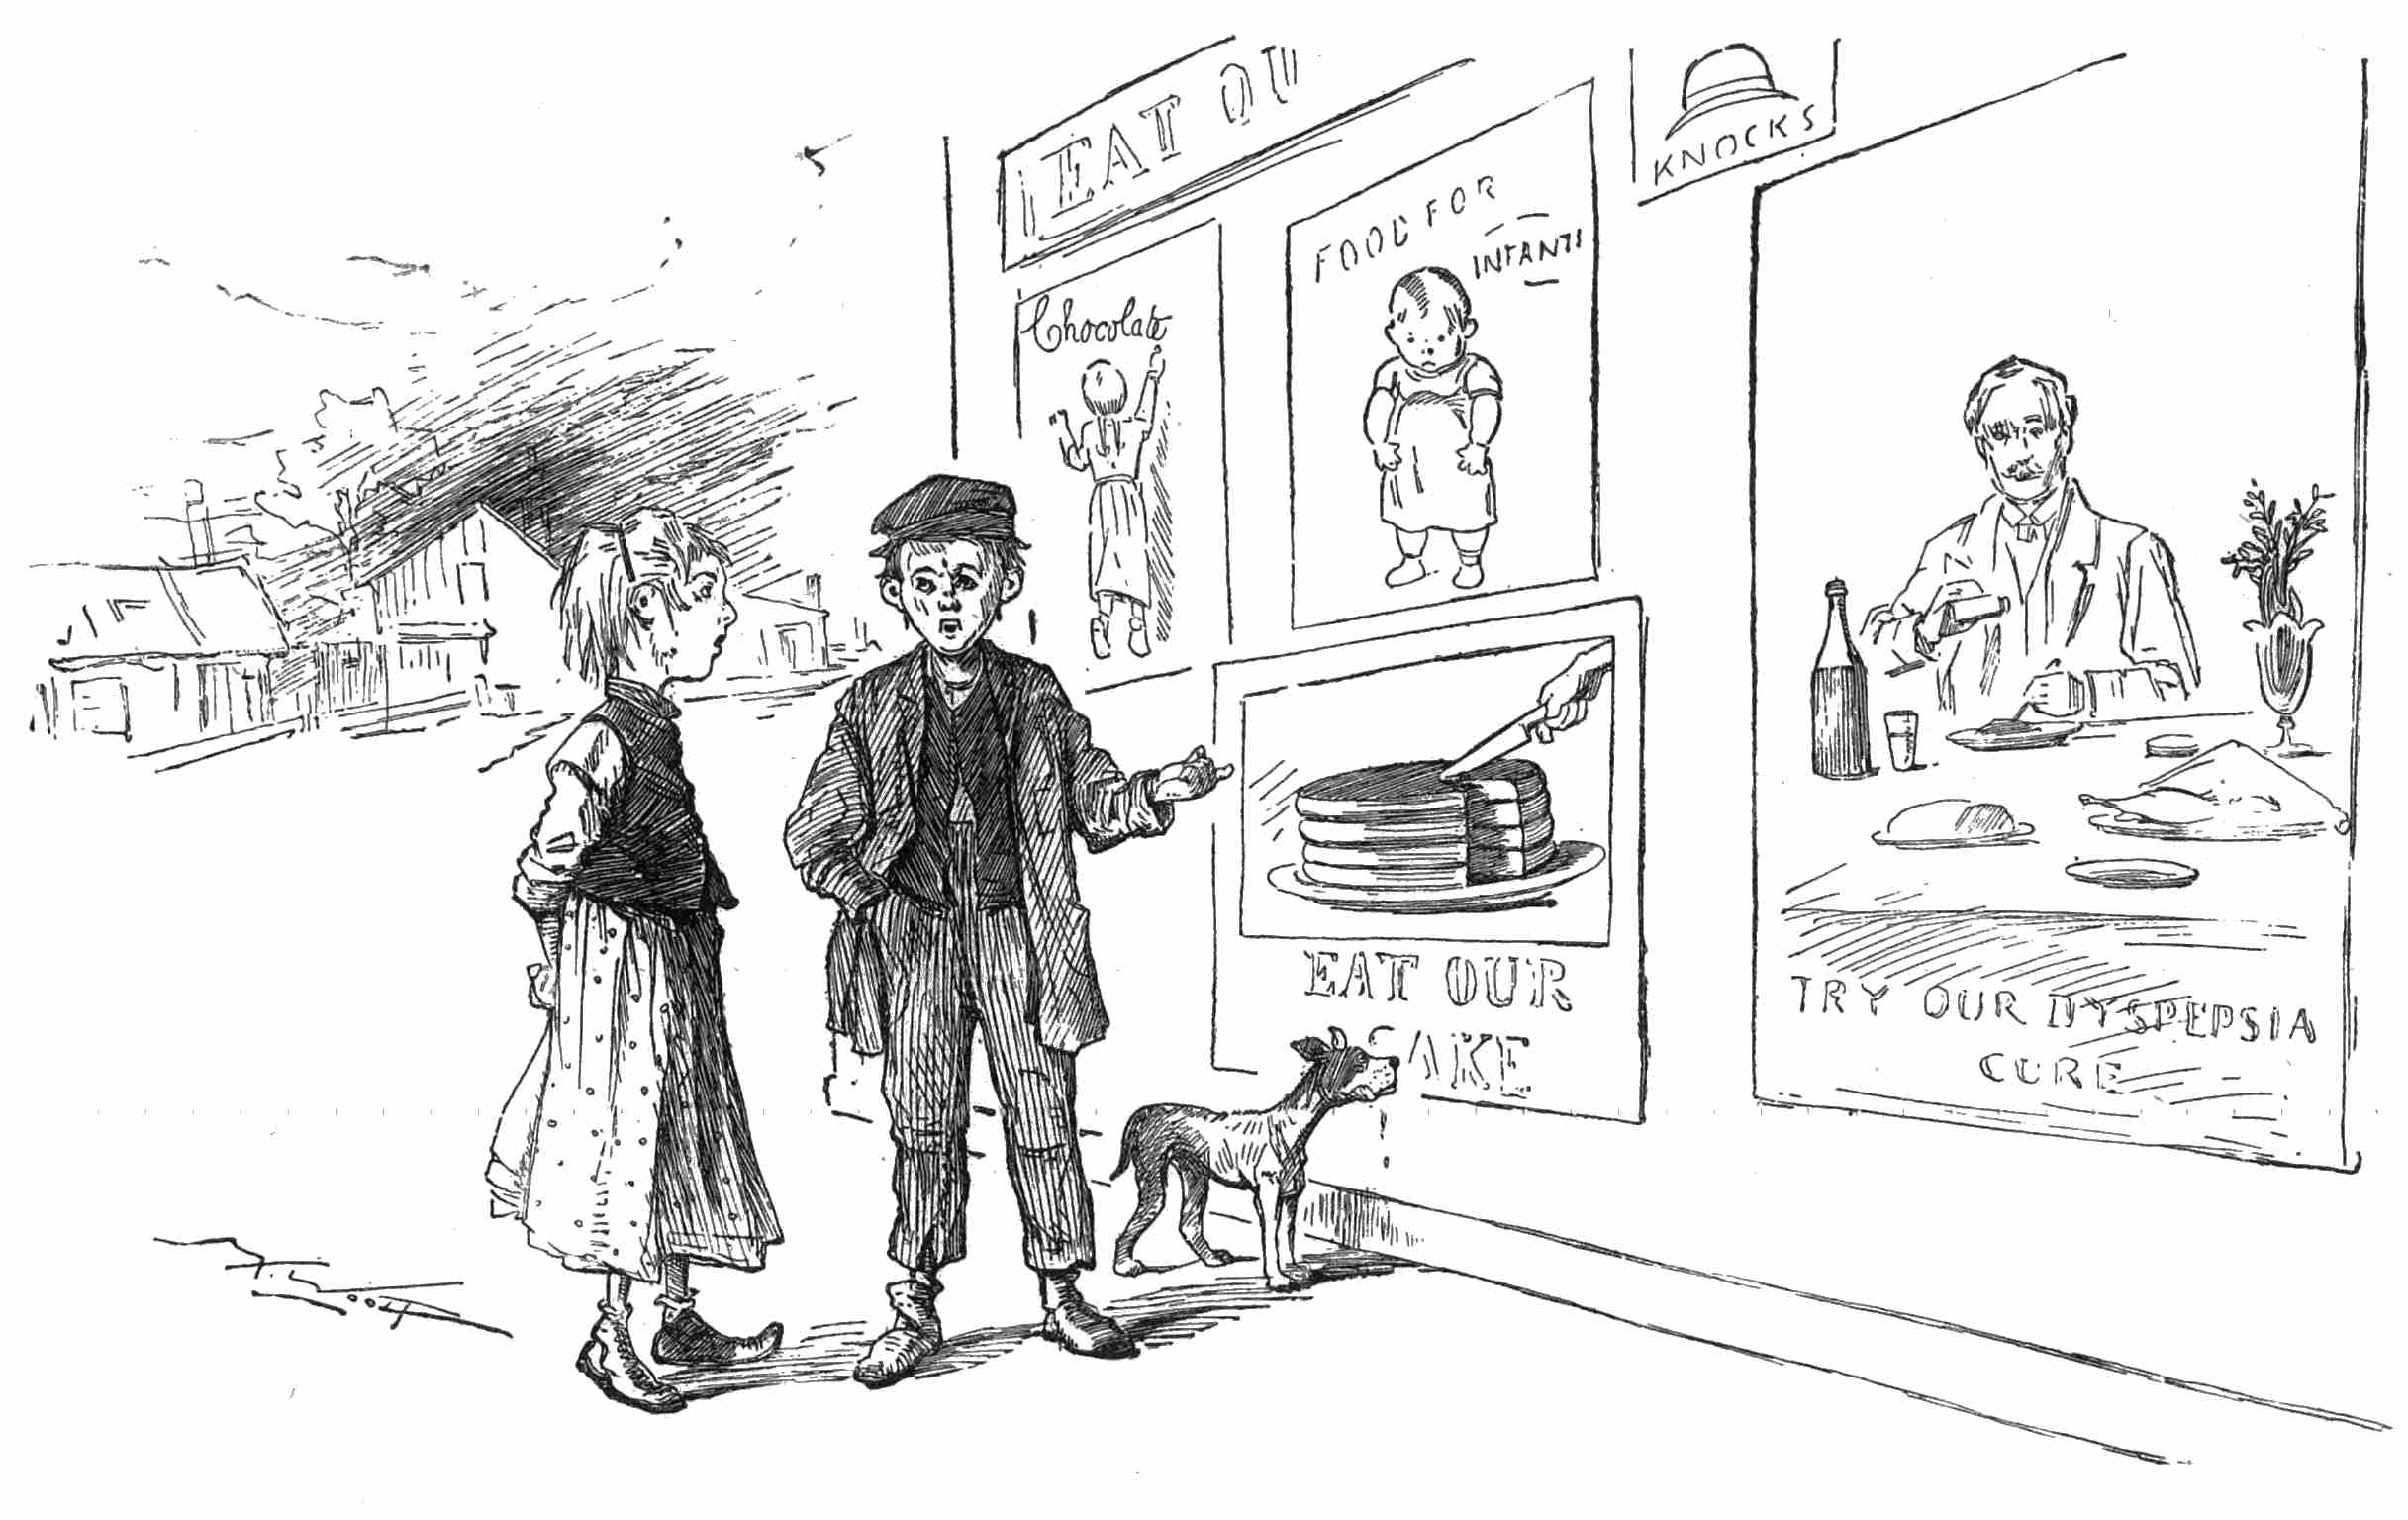 EAT OU
KNOCKS
Chocolate
FOOD FOR
INFANTS
EAT OUR
CAKE
TRY OUR DYSPEPSIA
CURE